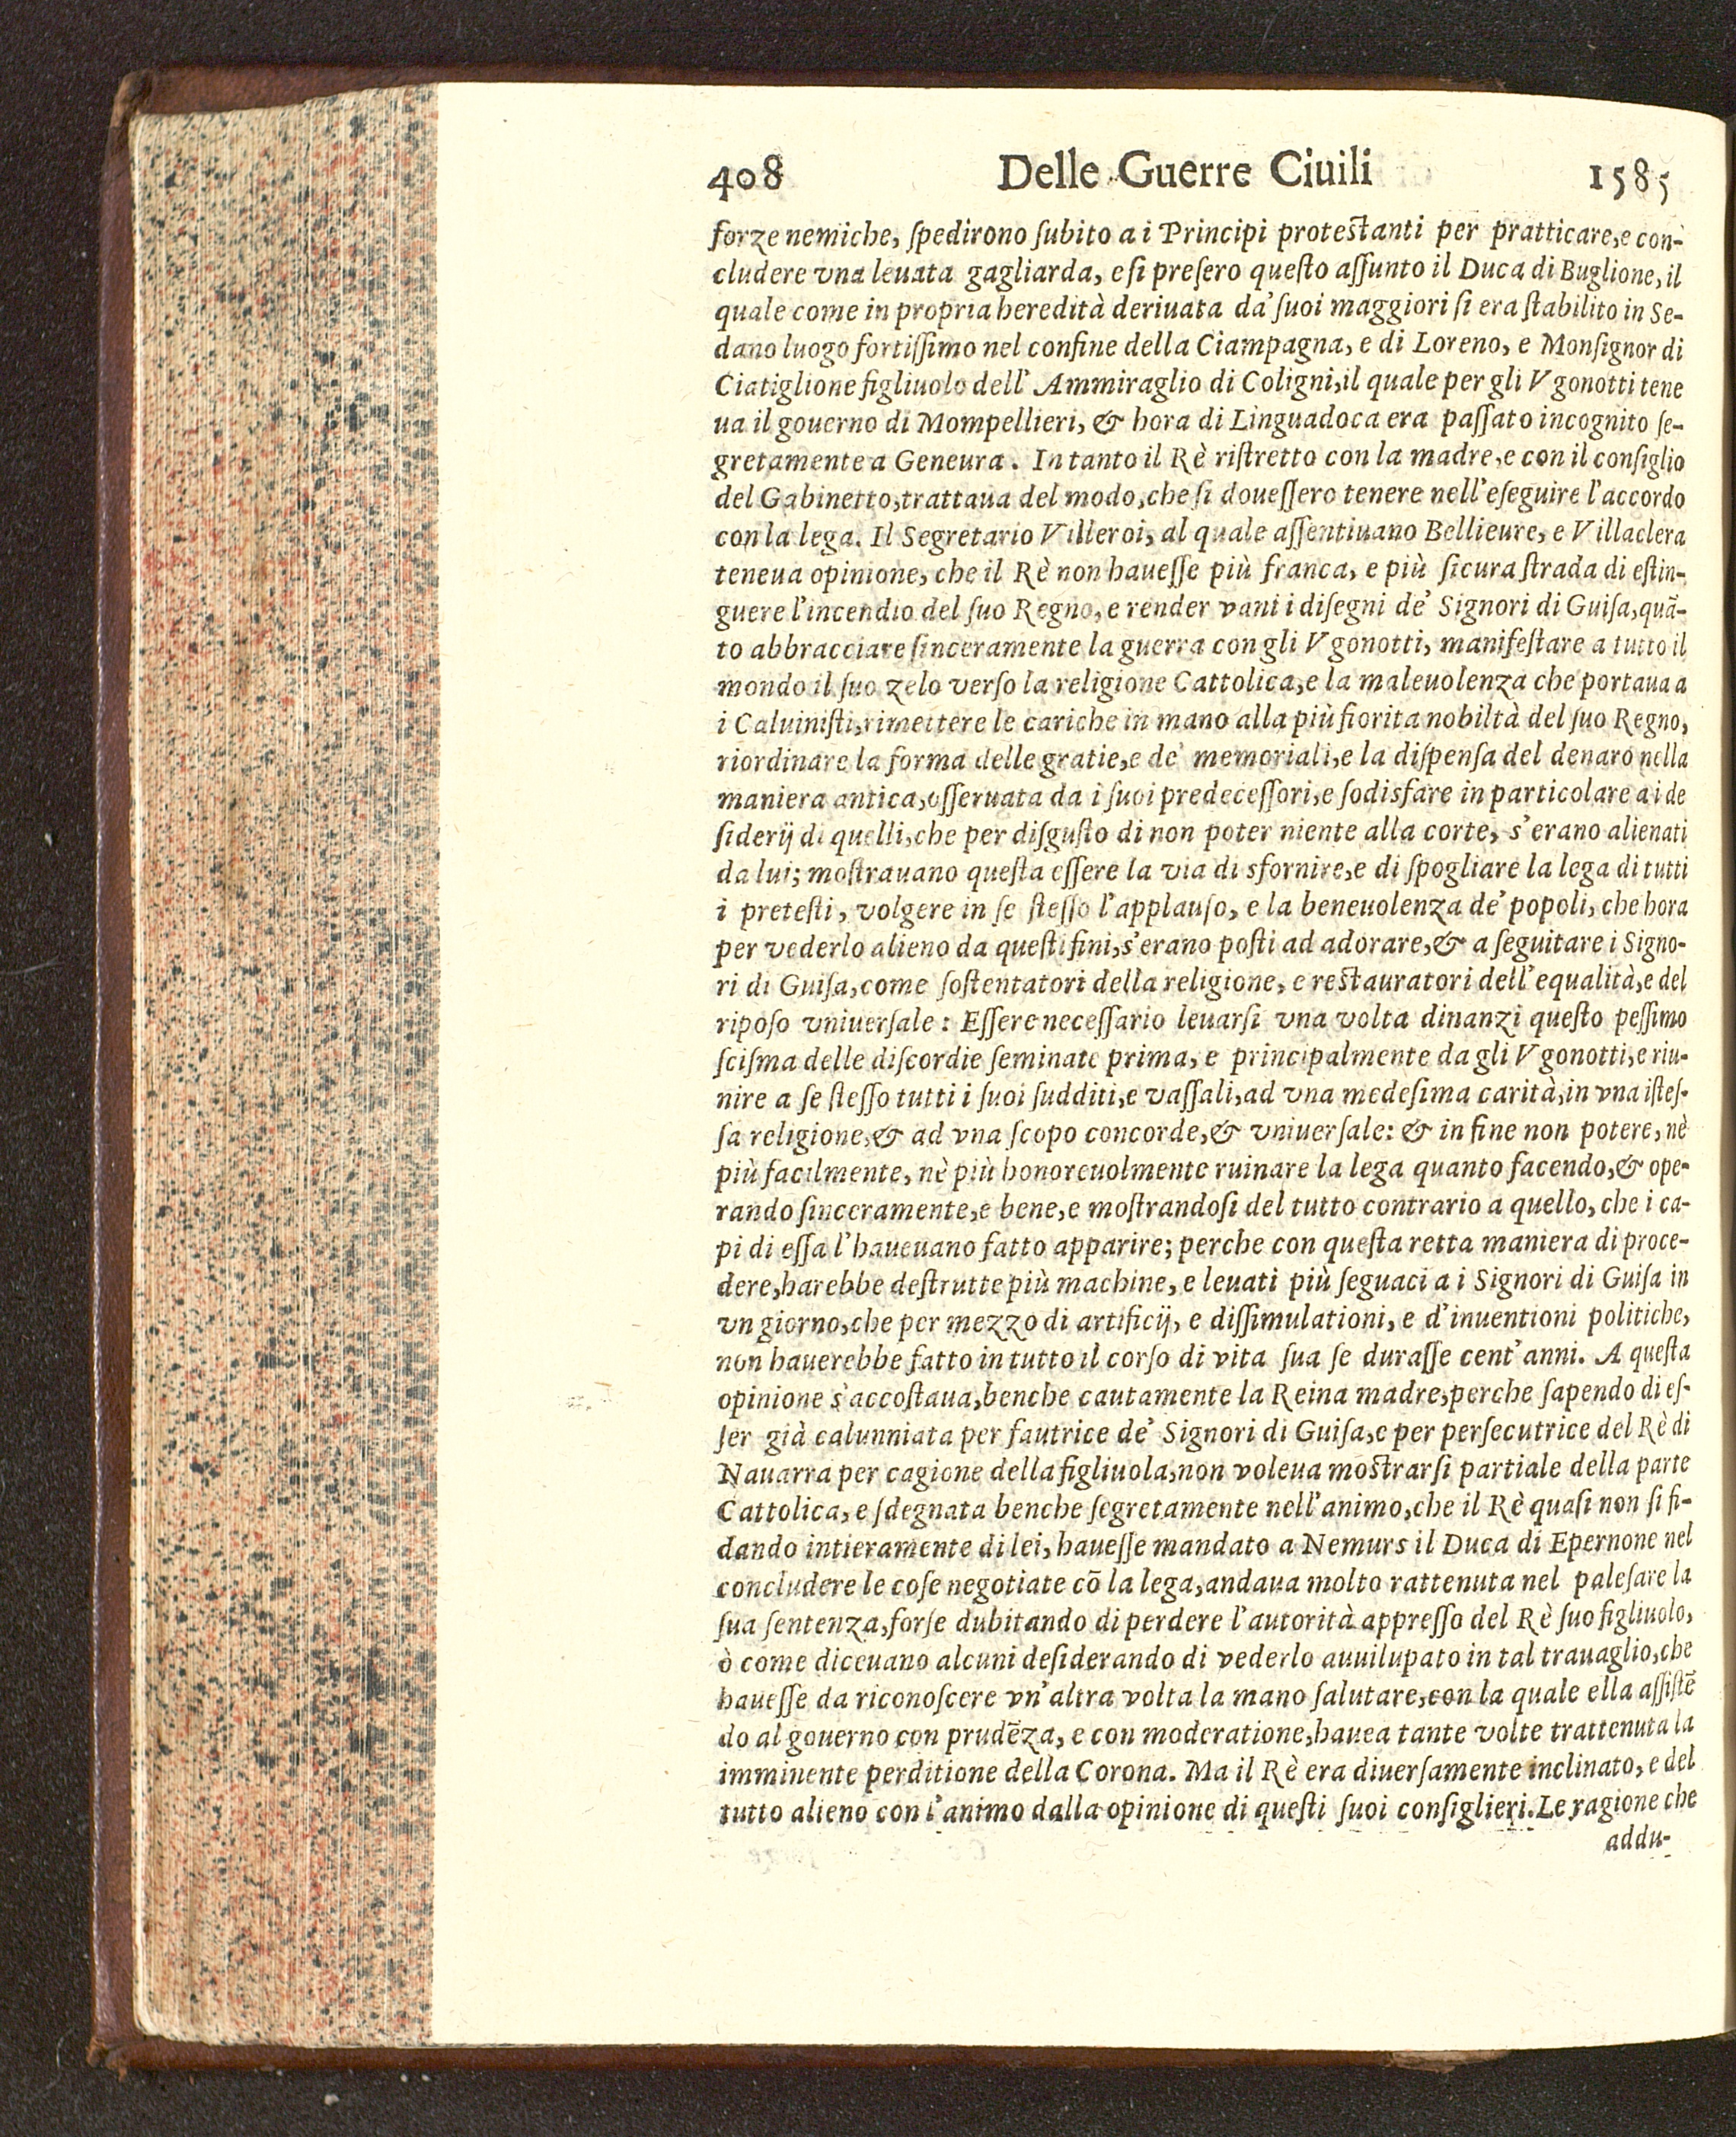 408 Delle Guerre Ciuili 1585
forze nemiche, ſpedirono ſubito a i Principi proteſtanti per pratticare, e con-
cludere vna leuata gagliarda, e ſi preſero queſto aſſunto il Duca di Buglione, il
quale come in propria heredità deriuata da' ſuoi maggiori ſi era ſtabilito in Se-
dano luogo fortiſſimo nel confine della Ciampagna, e di Loreno, e Monſignor di
Ciatiglione figliuolo dell' Ammiraglio di Coligni, il quale per gli Vgonotti tene
ua il gouerno di Mompellieri, & hora di Linguadoca era paſſato incognito ſe-
gretamente a Geneura. In tanto il Rè riſtretto con la madre, e con il conſiglio
del Gabinetto, trattaua del modo, che ſi doueſſero tenere nell'eſeguire l'accordo
con la lega. Il Segretario Villeroi, al quale aſſentiuano Bellieure, e Villaclera
teneua opinione, che il Rè non haueſſe più franca, e più ſicura ſtrada di eſtin-
guere l'incendio del ſuo Regno, e render vani i diſegni de' Signori di Guiſa, quā-
to abbracciare ſinceramente la guerra con gli Vgonotti, manifeſtare a tutto il
mondo il ſuo zelo verſo la religione Cattolica, e la maleuolenza che portaua a
i Caluiniſti, rimettere le cariche in mano alla più fiorita nobiltà del ſuo Regno,
riordinare la forma delle gratie, e de' memoriali, e la diſpenſa del denaro nella
maniera antica, oſſeruata da i ſuoi predeceſſori, e ſodisfare in particolare a i de
ſiderij di quelli, che per diſguſto di non poter niente alla corte, s'erano alienati
da lui; moſtrauano queſta eſſere la via di sfornire, e di ſpogliare la lega di tutti
i preteſti, volgere in ſe ſteſſo l'applauſo, e la beneuolenza de' popoli, che hora
per vederlo alieno da queſti fini, s'erano poſti ad adorare, & a ſeguitare i Signo-
ri di Guiſa, come ſoſtentatori della religione, e reſtauratori dell'equalità, e del
ripoſo vniuerſale: Eſſere neceſſario leuarſi vna volta dinanzi queſto peſſimo
ſciſma delle diſcordie ſeminate prima, e principalmente da gli Vgonotti, e riu-
nire a ſe ſteſſo tutti i ſuoi ſudditi, e vaſſali, ad vna medeſima carità, in vna iſteſ-
ſa religione, & ad vna ſcopo concorde, & vniuerſale: & in fine non potere, nè
più facilmente, nè più honoreuolmente ruinare la lega quanto facendo, & ope-
rando ſinceramente, e bene, e moſtrandoſi del tutto contrario a quello, che i ca-
pi di eſſa l'haueuano fatto apparire; perche con queſta retta maniera di proce-
dere, harebbe deſtrutte più machine, e leuati più ſeguaci a i Signori di Guiſa in
vn giorno, che per mezzo di artificij, e diſſimulationi, e d'inuentioni politiche,
non hauerebbe fatto in tutto il corſo di vita ſua ſe duraſſe cent'anni. A queſta
opinione s'accoſtaua, benche cautamente la Reina madre, perche ſapendo di eſ-
ſer già calunniata per fautrice de' Signori di Guiſa, e per perſecutrice del Rè di
Nauarra per cagione della figliuola, non voleua moſtrarſi partiale della parte
Cattolica, e ſdegnata benche ſegretamente nell'animo, che il Rè quaſi non ſi fi-
dando intieramente di lei, haueſſe mandato a Nemurs il Duca di Epernone nel
concludere le coſe negotiate cō la lega, andaua molto rattenuta nel paleſare la
ſua ſentenza, forſe dubitando di perdere l'autorità appreſſo del Rè ſuo figliuolo,
ò come diceuano alcuni deſiderando di vederlo auuilupato in tal trauaglio, che
haueſſe da riconoſcere vn'altra volta la mano ſalutare, con la quale ella aſſiſtē
do al gouerno con prudēza, e con moderatione, hauea tante volte trattenuta la
imminente perditione della Corona. Ma il Rè era diuerſamente inclinato, e del
tutto alieno con l'animo dalla opinione di queſti ſuoi conſiglieri. Le ragione che
addu-